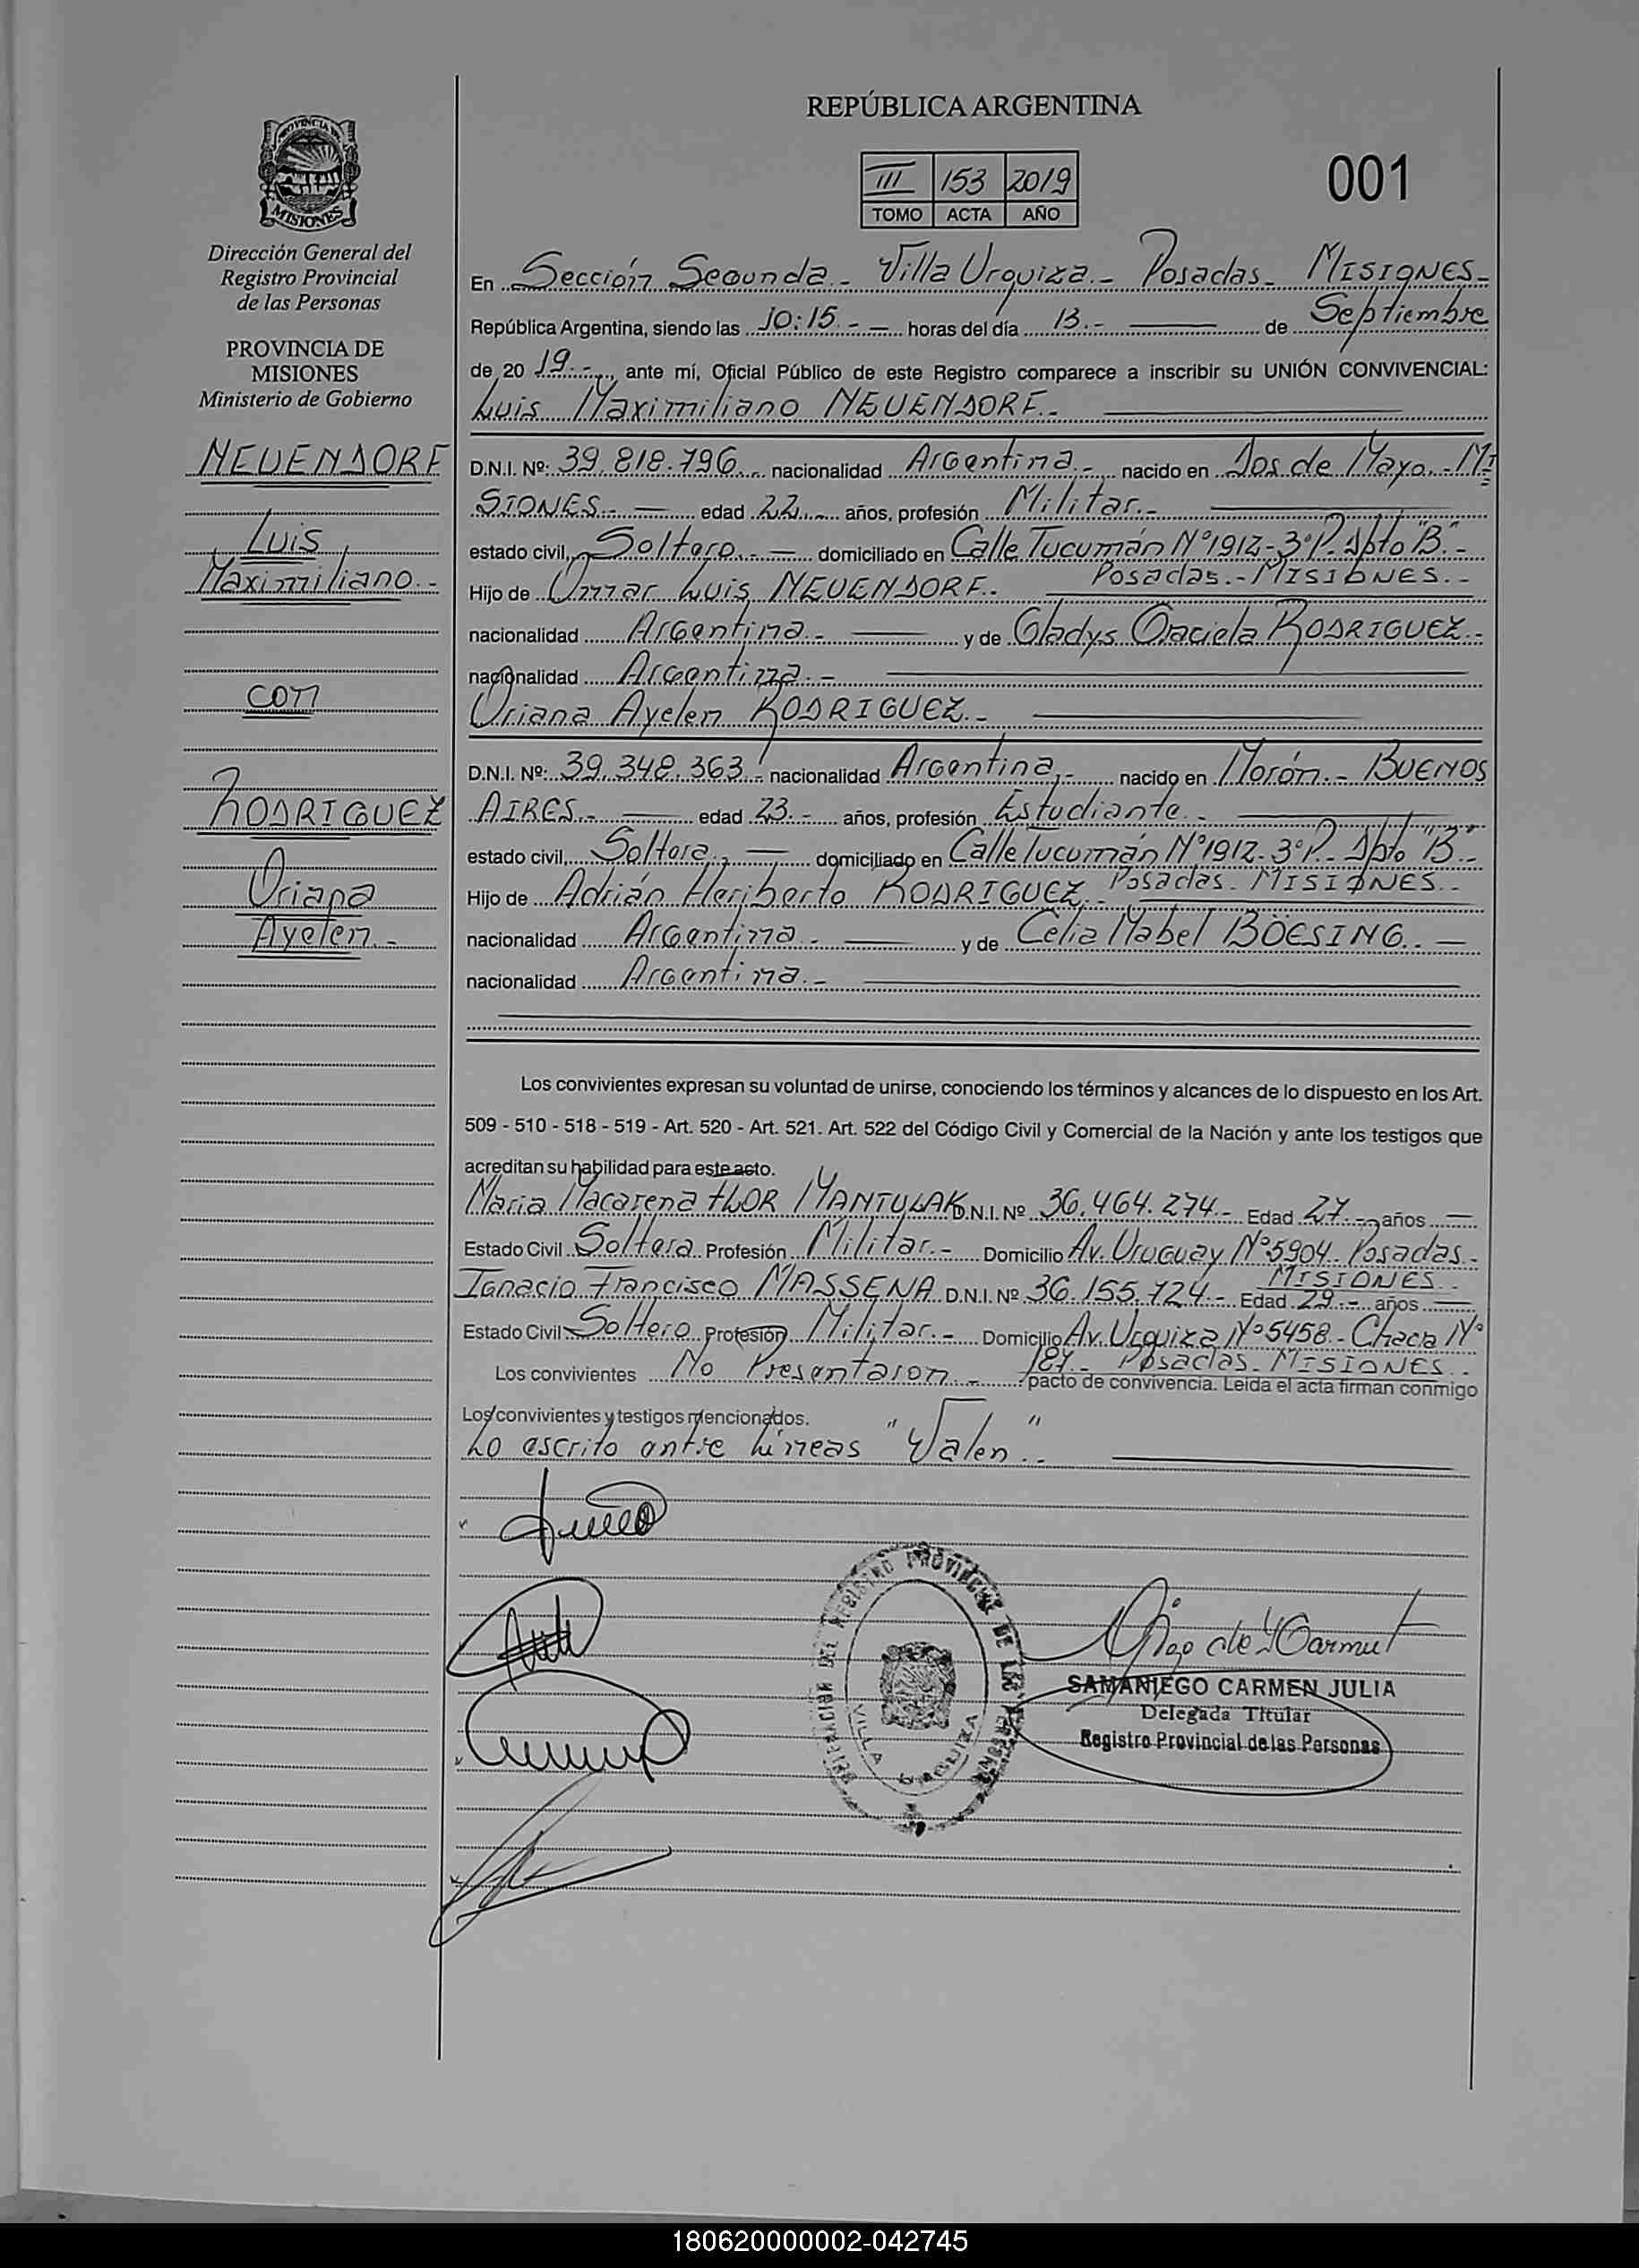 REPÚBLICA ARGENTINA
III 153 2019
TOMO ACTA AÑO
001
PROVINCIA DE
MISIONES
Dirección General del
Registro Provincial
de las Personas
PROVINCIA DE
MISIONES
Ministerio de Gobierno
NEUENDORF
Luis
Maximiliano.-
con
RODRIGUEZ
Oriana
Ayelen.-
En Sección Segunda.- Villa Urquiza.- Posadas.- MISIONES.-
República Argentina, siendo las 10:15.- — horas del día 13.- — de Septiembre
de 20 19.-, ante mí, Oficial Público de este Registro comparece a inscribir su UNIÓN CONVIVENCIAL:
Luis Maximiliano NEUENDORF.-
D.N.I. Nº: 39.818.796.- nacionalidad Argentina.- nacido en Dos de Mayo.- MI
SIONES.- — edad 22.- años, profesión Militar.-
estado civil, Soltero.- — domiciliado en Calle Tucumán Nº1912-3ºP. Dpto "B".-
Posadas.- MISIONES.-
Hijo de Omar Luis NEUENDORF.-
nacionalidad Argentina.- — y de Gladys Graciela RODRIGUEZ.-
nacionalidad Argentina.-
Oriana Ayelen RODRIGUEZ.-
D.N.I. Nº: 39.348.363.- nacionalidad Argentina.- nacido en Morón.- BUENOS
AIRES.- — edad 23.- años, profesión Estudiante.-
estado civil, Soltera.- — domiciliado en Calle Tucumán Nº1912-3ºP.- Dpto "B".-
Posadas.- MISIONES.-
Hijo de Adrián Heriberto RODRIGUEZ.-
nacionalidad Argentina.- — y de Celia Mabel BÖESING.- —
nacionalidad Argentina.-
Los convivientes expresan su voluntad de unirse, conociendo los términos y alcances de lo dispuesto en los Art.
509 - 510 - 518 - 519 - Art. 520 - Art. 521. Art. 522 del Código Civil y Comercial de la Nación y ante los testigos que
acreditan su habilidad para este acto.
Maria Macarena FLOR MANTULAK D.N.I. Nº 36.464.274.- Edad 27.- años —
Estado Civil Soltera Profesión Militar.- Domicilio Av. Uruguay Nº5904.- Posadas.-
MISIONES.-
Ignacio Francisco MASSENA D.N.I. Nº 36.155.724.- Edad 29.- años —
Estado Civil Soltero Profesión Militar.- Domicilio Av. Urquiza Nº5458.- Chacra Nº
Posadas.- MISIONES.-
Los convivientes No Presentaron.- pacto de convivencia. Leída el acta firman conmigo
Los convivientes y testigos mencionados.
Lo escrito entre lineas "Valen".-
DELEGACION DEL REGISTRO PROVINCIAL DE LAS PERSONAS
VILLA URQUIZA
SAMANIEGO CARMEN JULIA
Delegada Titular
Registro Provincial de las Personas
180620000002-042745